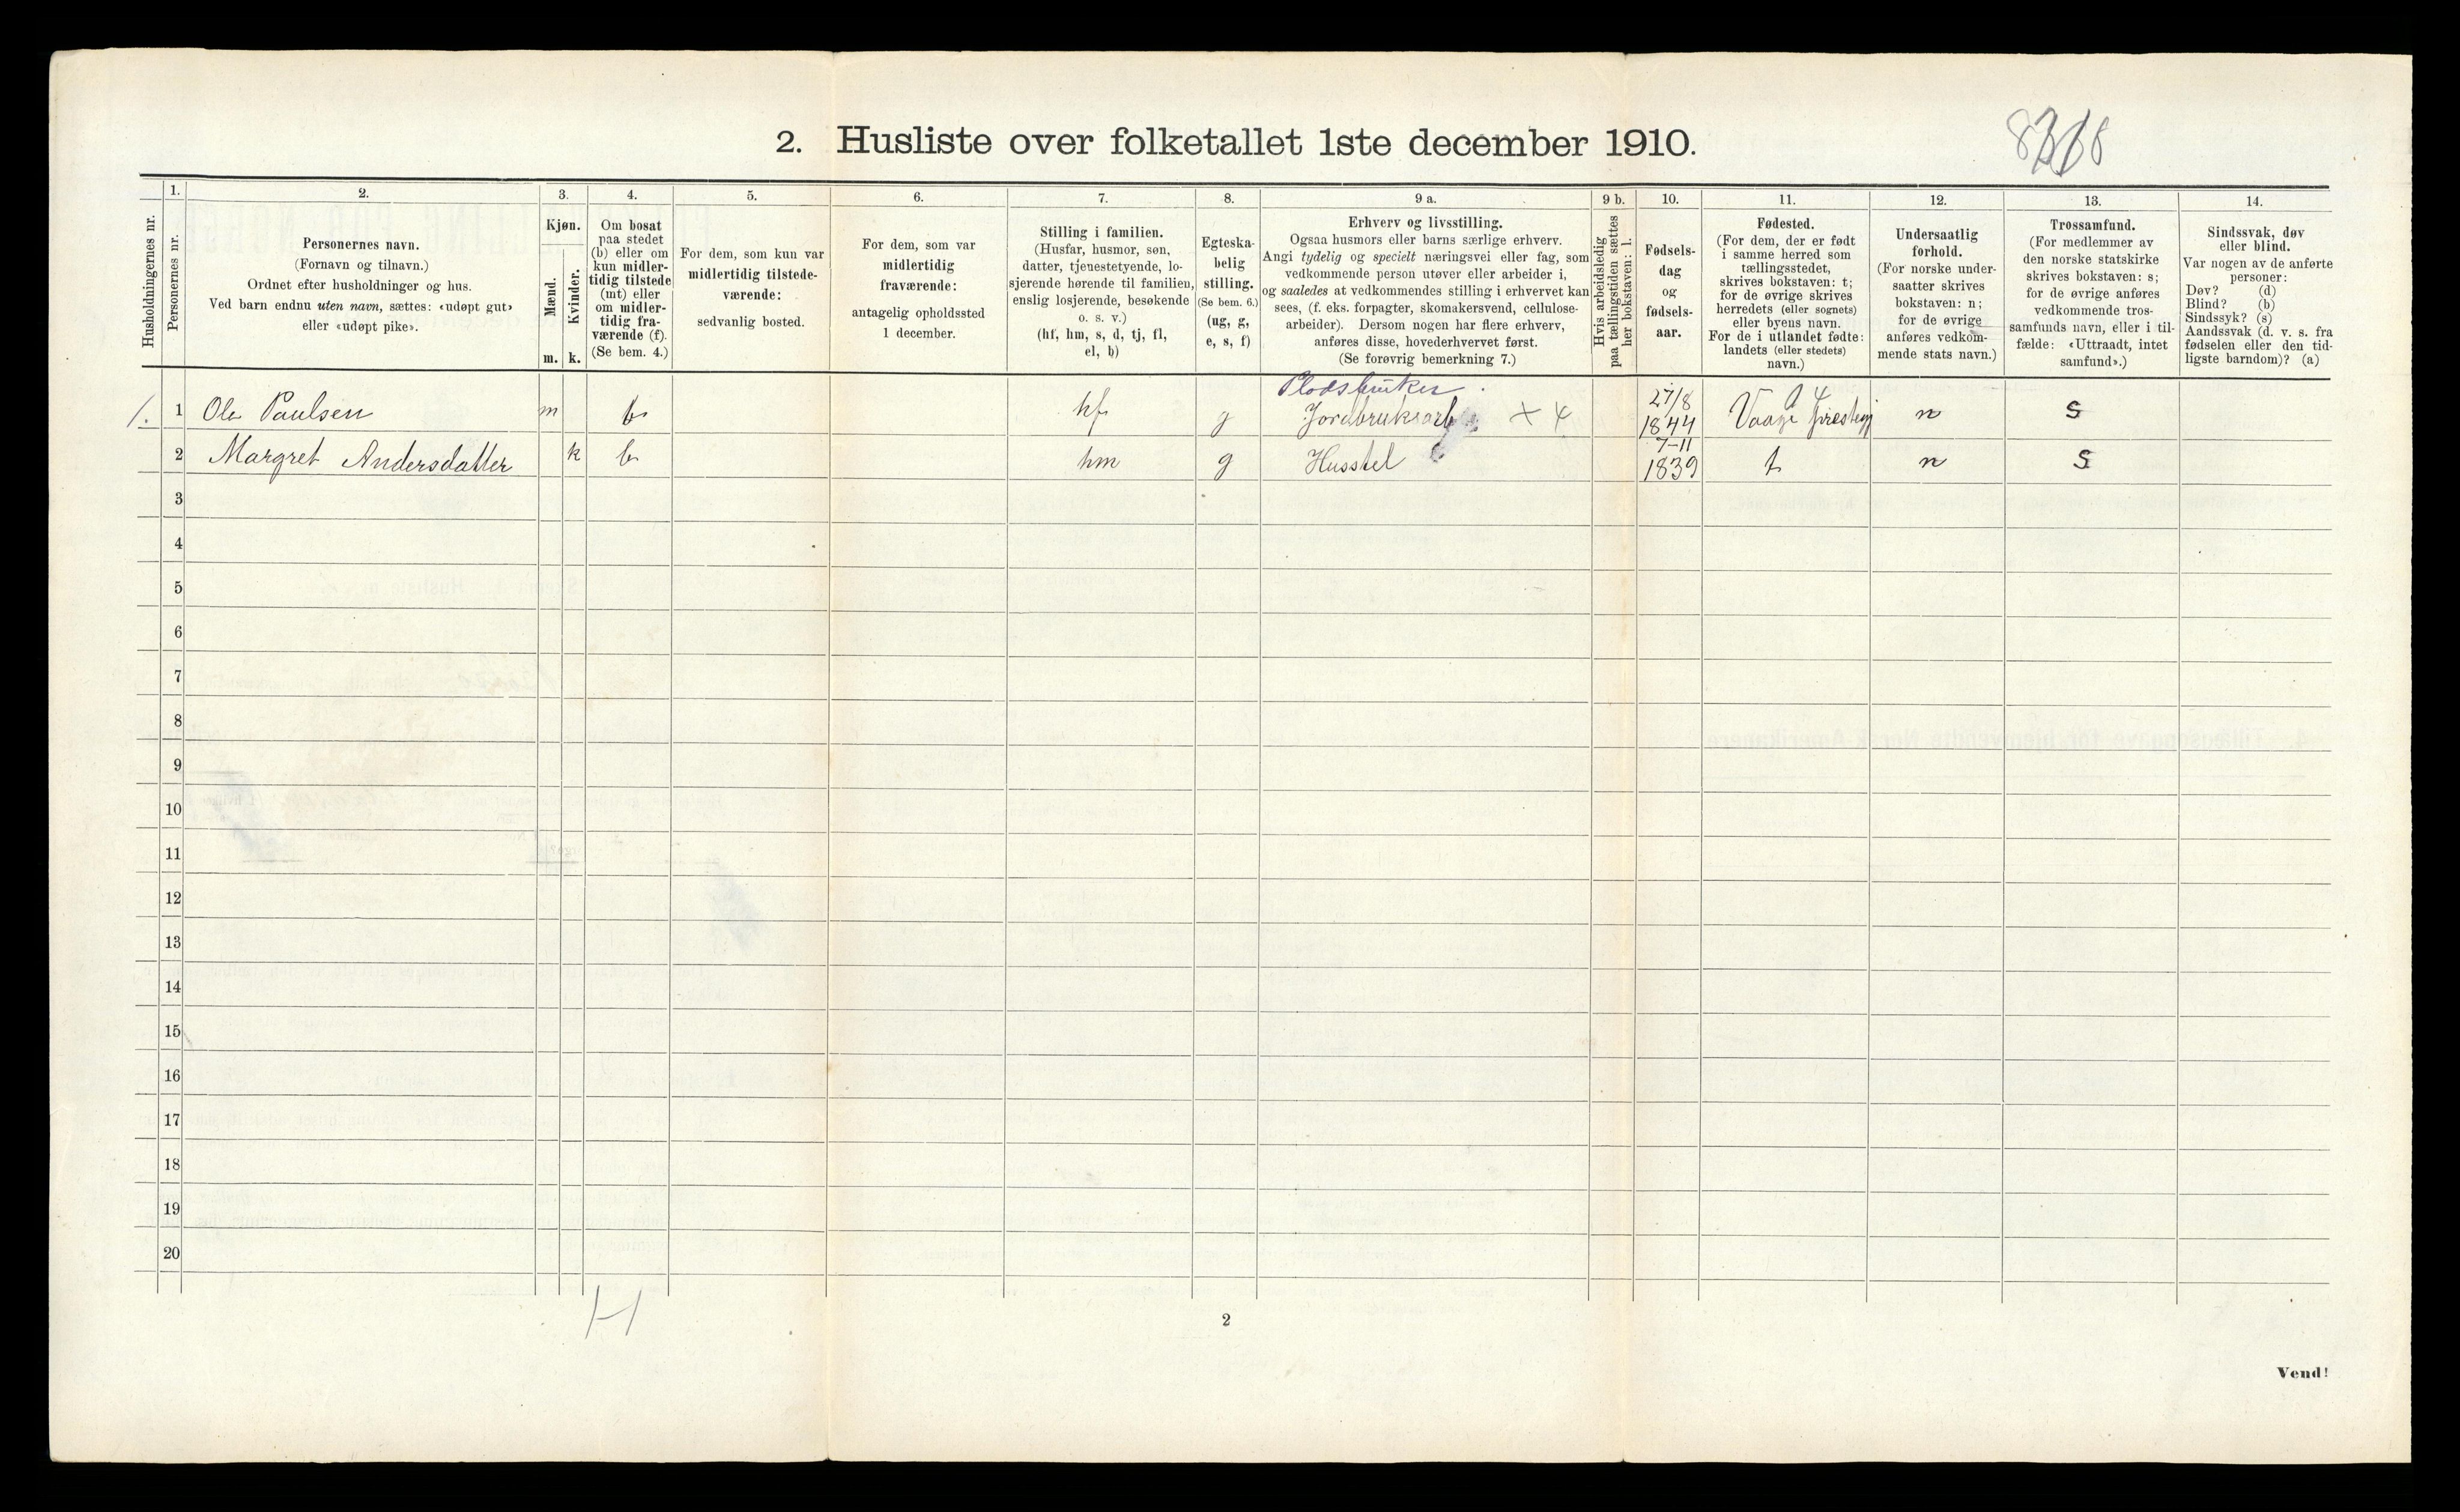 2. Husliste over folketallet 1ste december 1910.
Husholdningernes nr.
1.
Personernes nr.
2.
Personernes navn.
(Fornavn og tilnavn.)
Ordnet efter husholdninger og hus.
Ved barn endnu uten navn, sættes: «udøpt gut»
eller «udøpt pike».
3.
Kjøn.
Mænd.
m.
Kvinder.
k.
4.
Om bosat
paa stedet
(b) eller om
kun midler-
tidig tilstede
(mt) eller
om midler-
tidig fra-
værende (f).
(Se bem. 4.)
5.
For dem, som kun var
midlertidig tilstede-
værende:
sedvanlig bosted.
6.
For dem, som var
midlertidig
fraværende:
antagelig opholdssted
1 december.
7.
Stilling i familien.
(Husfar, husmor, søn,
datter, tjenestetyende, lo-
sjerende hørende til familien,
enslig losjerende, besøkende
o. s. v.)
(hf, hm, s, d, tj, fl,
el, b)
8.
Egteska-
belig
stilling.
(Se bem. 6.)
(ug, g,
e, s, f)
9 a.
Erhverv og livsstilling.
Ogsaa husmors eller barns særlige erhverv.
Angi tydelig og specielt næringsvei eller fag, som
vedkommende person utøver eller arbeider i,
og saaledes at vedkommendes stilling i erhvervet kan
sees, (f. eks. forpagter, skomakersvend, cellulose-
arbeider). Dersom nogen har flere erhverv,
anføres disse, hovederhvervet først.
(Se forøvrig bemerkning 7.)
9 b.
Hvis arbeidsledig
paa tællingstiden sættes
her bokstaven: l.
10.
Fødsels-
dag
og
fødsels-
aar.
11.
Fødested.
(For dem, der er født
i samme herred som
tællingsstedet,
skrives bokstaven: t;
for de øvrige skrives
herredets (eller sognets)
eller byens navn.
For de i utlandet fødte:
landets (eller stedets)
navn.)
12.
Undersaatlig
forhold.
(For norske under-
saatter skrives
bokstaven: n;
for de øvrige
anføres vedkom-
mende stats navn.)
13.
Trossamfund.
(For medlemmer av
den norske statskirke
skrives bokstaven: s;
for de øvrige anføres
vedkommende tros-
samfunds navn, eller i til-
fælde: «Uttraadt, intet
samfund».)
14.
Sindssvak, døv
eller blind.
Var nogen av de anførte
personer:
Døv? (d)
Blind? (b)
Sindssyk? (s)
Aandssvak (d. v. s. fra
fødselen eller den tid-
ligste barndom)? (a)
Pladsbruker
1. 1 Ola Paulsen m b hf g Jordbruksarb 27/8 1844 Vaage n s
2 Margret Andersdatter k b hm g Husstel 7-11 1839 t n s
3
4
5
6
7
8
9
10
11
12
13
14
15
16
17
18
19
20
H
2
Vend!